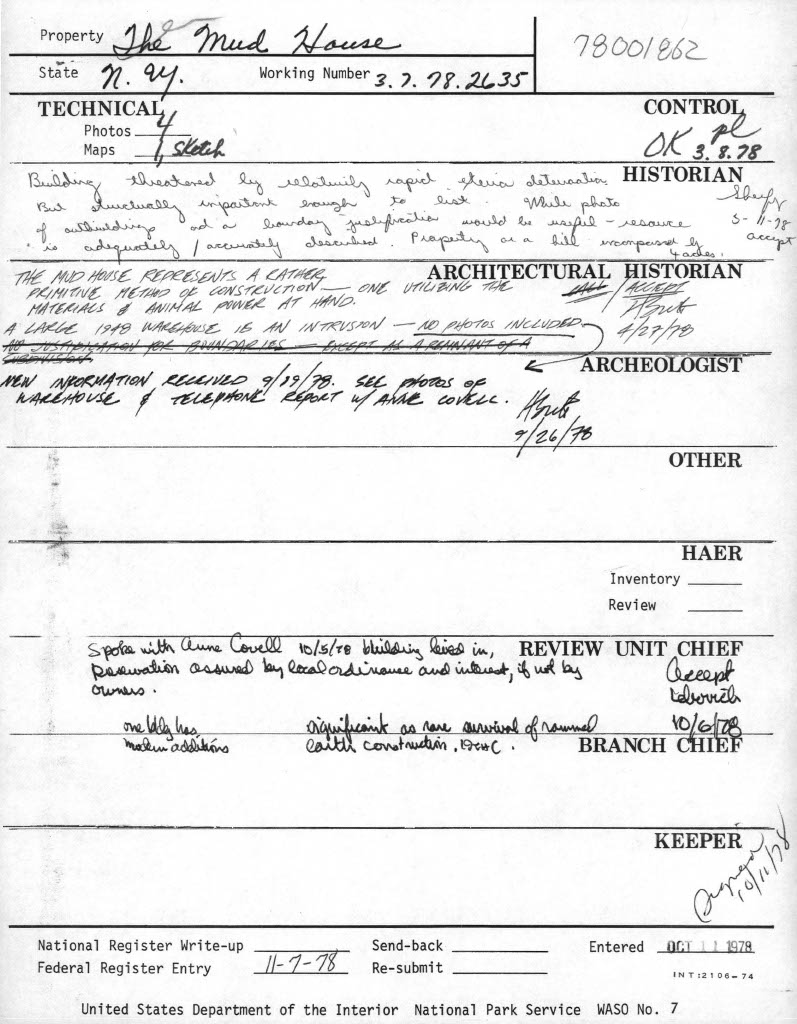 Property The Mud House
78001862
State N.Y. Working Number 3.7.78.2635
TECHNICAL
CONTROL
Photos 4
Maps 1, sketch
OK pl 3.8.78
HISTORIAN
Building threatened by relatively rapid deterioration.
But structurally important enough to list. While photo
of outbuildings and a boundary justification would be useful – resource
is adequately / accurately described. Property on a hill encompassed by
4 acres.
5-11-78
accept
ARCHITECTURAL HISTORIAN
THE MUD HOUSE REPRESENTS A RATHER
PRIMITIVE METHOD OF CONSTRUCTION — ONE UTILIZING THE
MATERIALS & ANIMAL POWER AT HAND.
CALL / ACCEPT
4/27/78
A LARGE 1948 WAREHOUSE IS AN INTRUSION — NO PHOTOS INCLUDED.
NO JUSTIFICATION FOR BOUNDARIES — EXCEPT AS A REMNANT OF A
SUBDIVISION
ARCHEOLOGIST
NEW INFORMATION RECEIVED 9/19/78. SEE PHOTOS OF
WAREHOUSE & TELEPHONE REPORT W/ ANNE COVELL.
9/26/78
OTHER
HAER
Inventory
Review
REVIEW UNIT CHIEF
Spoke with Anne Covell 10/5/78 building lived in,
preservation assured by local ordinance and interest, if not by
owners.
Accept
Lebovich
10/6/78
one bldg has
modern additions
significant as rare survival of rammed
earth construction, 19thC.
BRANCH CHIEF
KEEPER
10/11/78
National Register Write-up
Send-back
Entered OCT 11 1978
Federal Register Entry 11-7-78
Re-submit
INT:2106-74
United States Department of the Interior National Park Service WASO No. 7